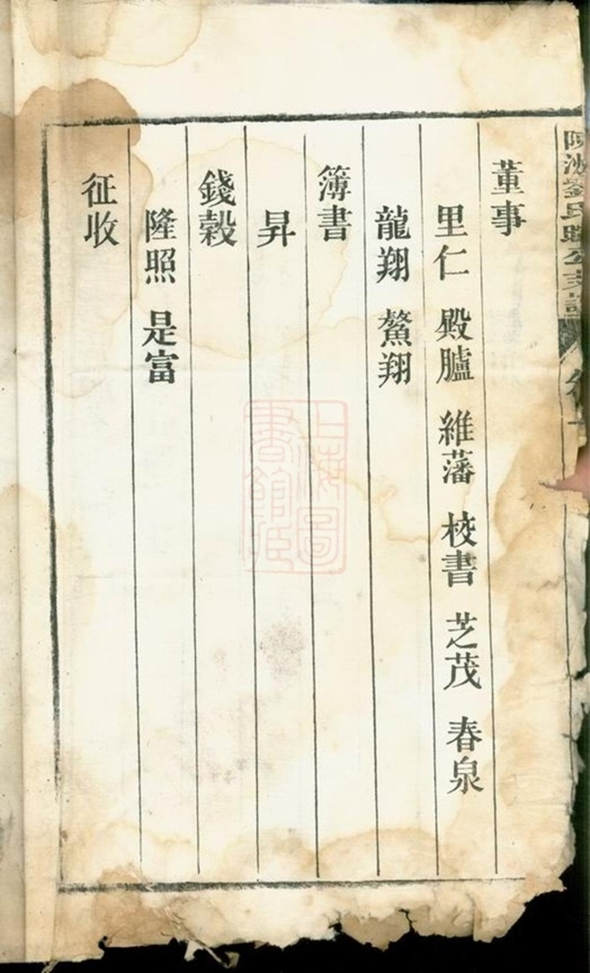 劉氏 公支譜
董事
里仁 殿臚 維藩 校書 芝茂 春泉
龍翔 鰲翔
簿書
昇
錢穀
隆照 是富
征收
上海圖
書館藏